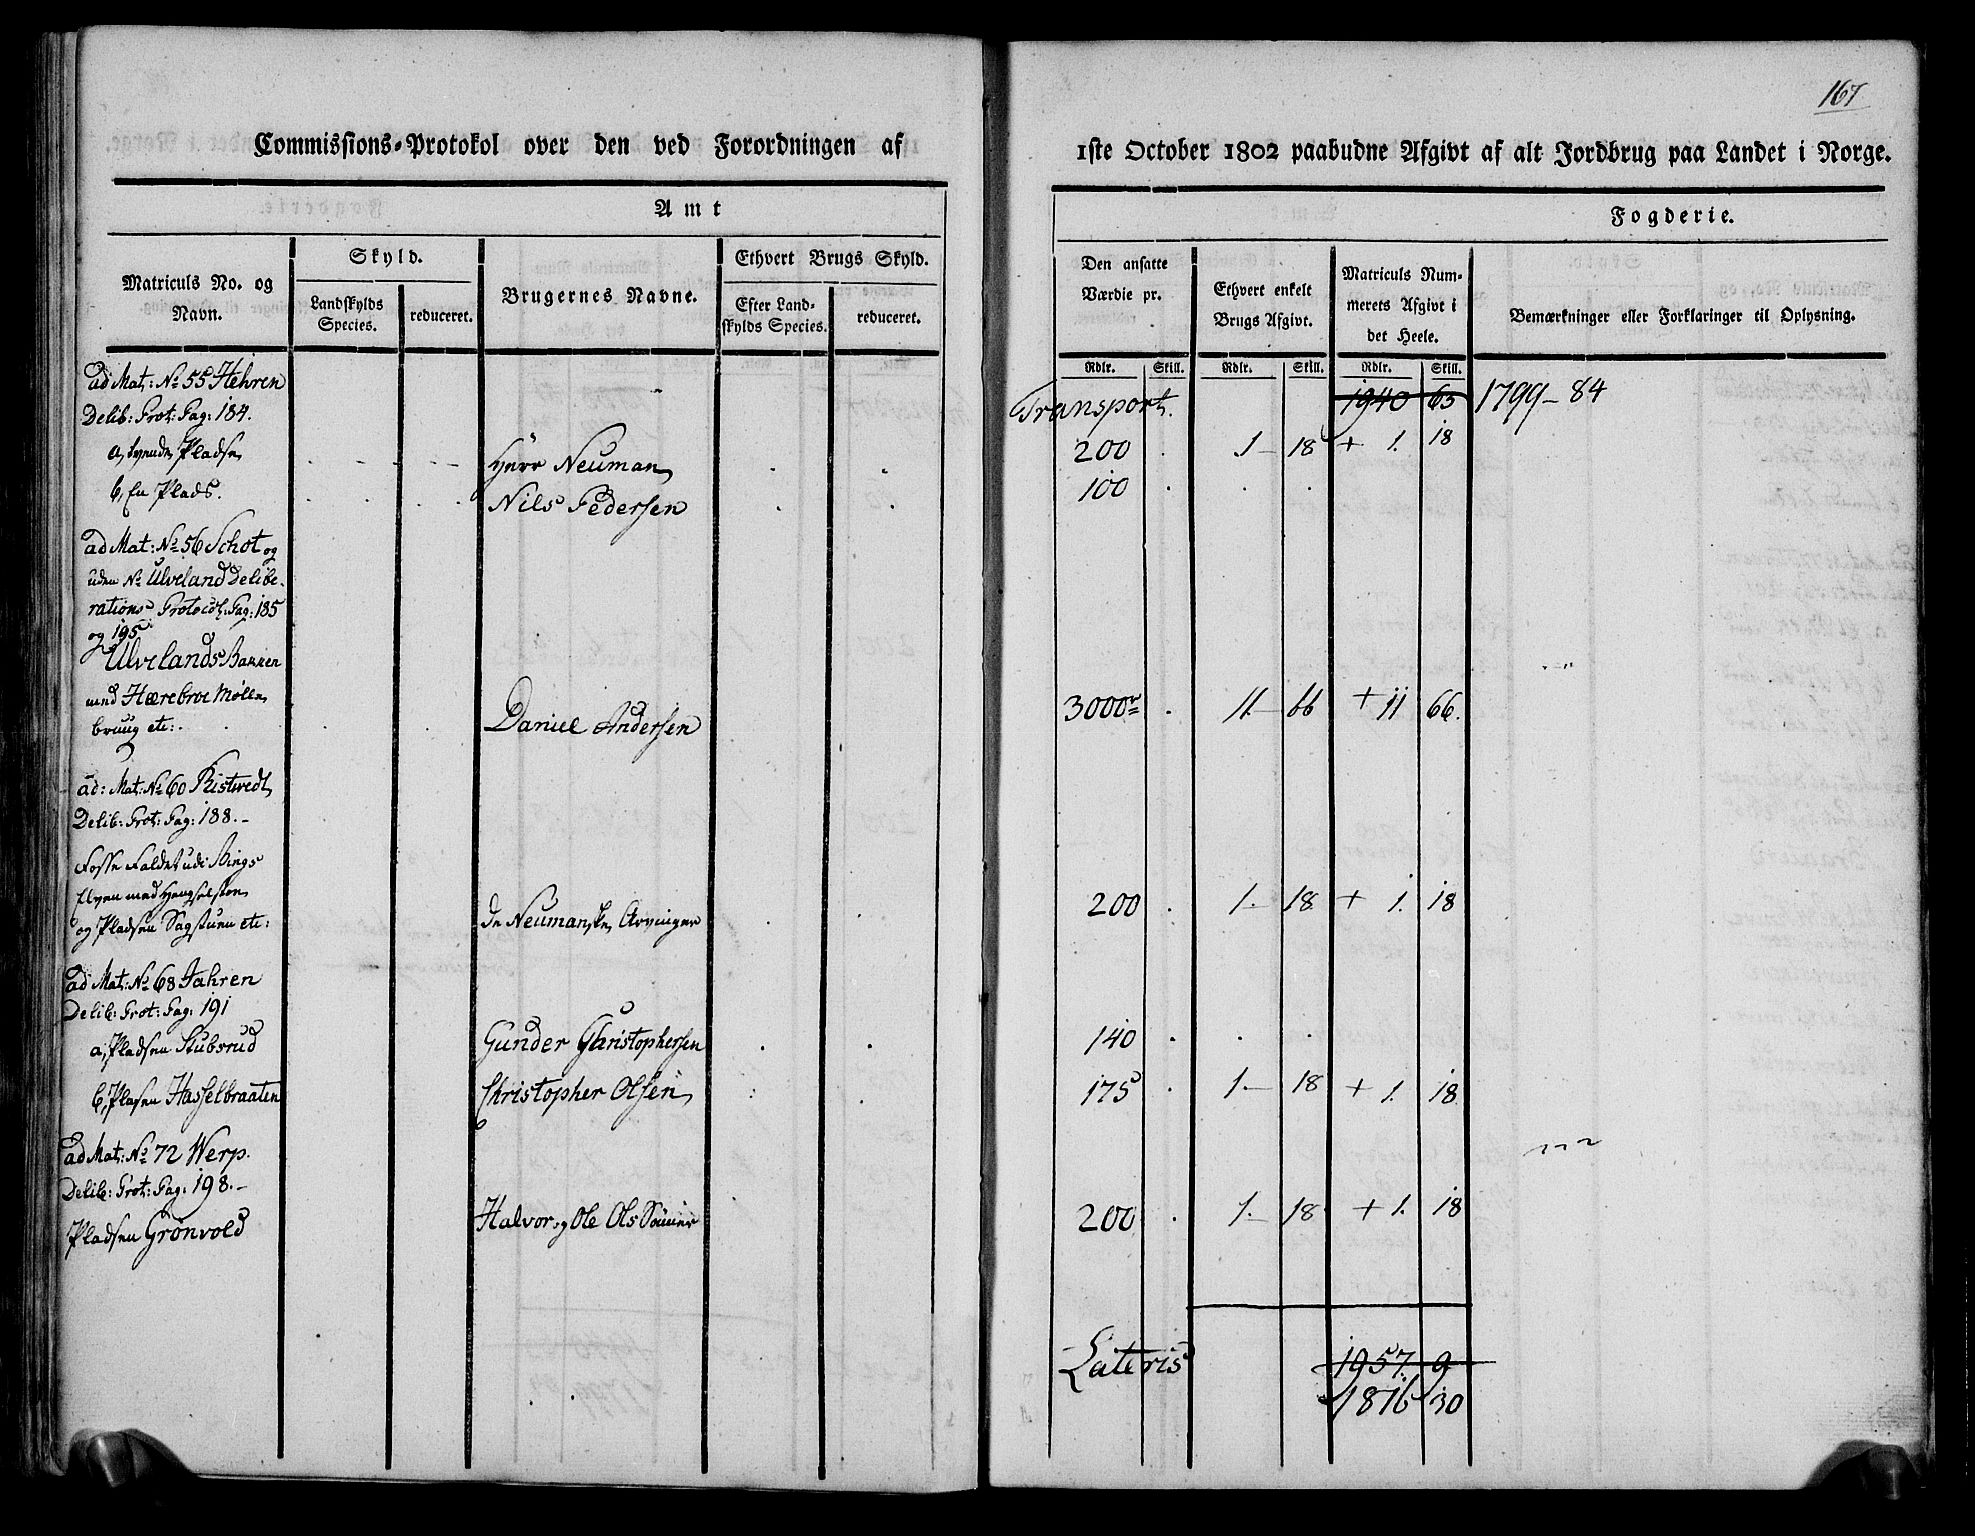 167
Commissions-Protokol over den ved Forordningen af 1ste October 1802 paabudne Afgivt af alt Jordbrug paa Landet i Norge.
Amt Fogderie.
Matriculs No. og Navn.
Skyld.
Landskylds Species.
reduceret.
Brugernes Navne.
Ethvert Brugs Skyld.
Efter Landskylds Species.
reduceret.
Den ansatte Værdie pr.
Ethvert enkelt Brugs Afgivt.
Matriculs Nummerets Afgivt i det Heele.
Bemærkninger eller Forklaringer til Oplysning.
Rdlr. Skill. Rdlr. Skill. Rdlr. Skill.
Transport. 1940 63 1799-84
ad Mat: No 55 Hehren
Delib: Prot: Pag: 184.
a, tvende Pladse Herr Neuman 200 1 18 + 1. 18
b, En Plads. Nils Pedersen 100
ad Mat: No 56 Schot og
uden No Ulveland Delibe-
rations Protocol: Pag: 185
og 195
Ulvelands Bakken
med Hærebroe Mølle
bruug etc: Daniel Andersen 3000 11 66 + 11 66.
ad: Mat: No 60 Ristvedt
Delib: Prot: Pag: 188.-
Fosse Faldet udi Bings
Elven med Hengselskoe
og Pladsen Sagstuen etc: de Neumanske Arvinger 200 1. 18 + 1. 18
ad Mat: No 68 Jahren
Delib: Prot: Pag: 191
a, Pladsen Stubsrud Gunder Christophersen 140
b, Plasen Hasselbraaten Christopher Olsen 175 1. 18 + 1. 18
ad Mat: No 72 Werp.
Delib: Prot: Pag: 198.-
Pladsen Grönvold Halvor og Ole Ols Sönner 200 1. 18 + 1. 18
Lateris 1957. 9
1816 30